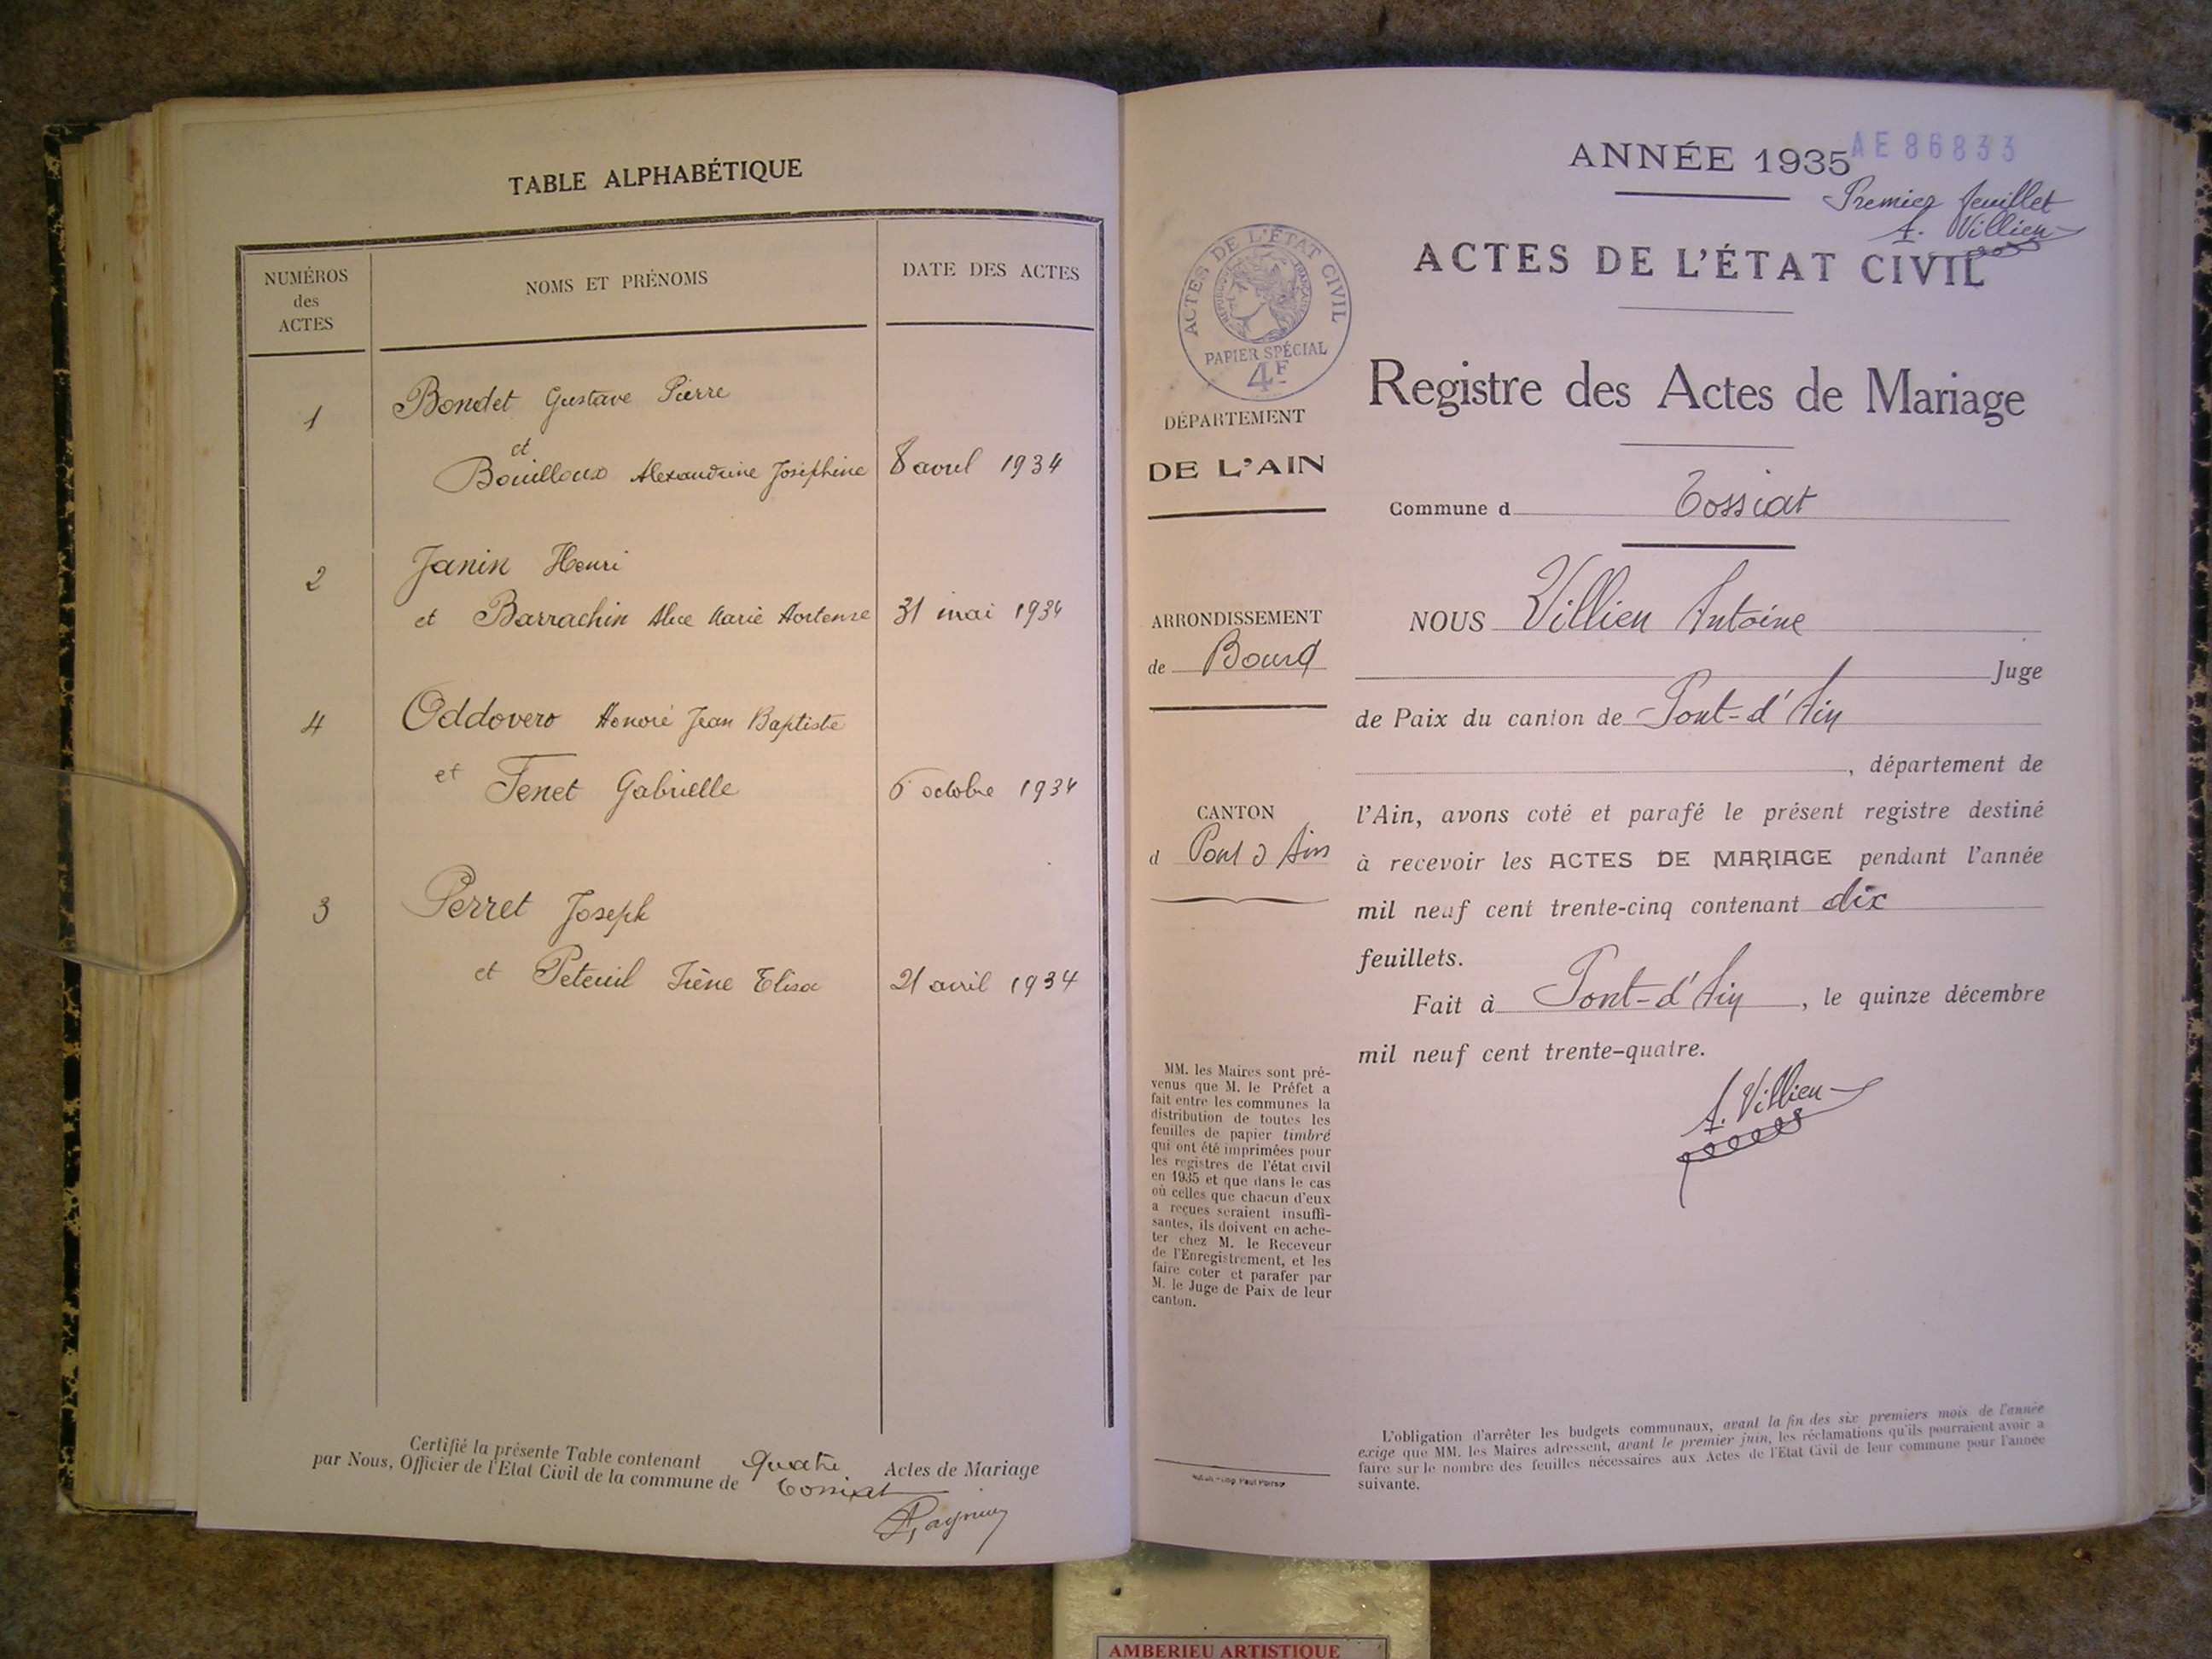 TABLE ALPHABÉTIQUE
NUMÉROS
des
ACTES
NOMS ET PRÉNOMS
DATE DES ACTES
1
Bondet Gustave Pierre
et
Bouilloux Alexandrine Joséphine
8 avril 1934
2
Janin Henri
et Barrachin Alice Marie Hortense
31 mai 1934
4
Oddovero Honoré Jean Baptiste
et Fenet Gabrielle
6 octobre 1934
3
Perret Joseph
et Peteuil Irène Elisa
21 avril 1934
Certifié la présente Table contenant quatre Actes de Mariage
par Nous, Officier de l'Etat Civil de la commune de Tossiat
ANNÉE 1935
AE 86833
Premier feuillet
A. Villien
ACTES DE L'ÉTAT CIVIL
ACTES DE L'ÉTAT CIVIL
RÉPUBLIQUE FRANÇAISE
PAPIER SPÉCIAL
4F
Registre des Actes de Mariage
DÉPARTEMENT
DE L'AIN
Commune d Tossiat
ARRONDISSEMENT
de Bourg
CANTON
d Pont d'Ain
NOUS Villien Antoine
Juge
de Paix du canton de Pont-d'Ain
, département de
l'Ain, avons coté et parafé le présent registre destiné
à recevoir les ACTES DE MARIAGE pendant l'année
mil neuf cent trente-cinq contenant dix
feuillets.
Fait à Pont-d'Ain, le quinze décembre
mil neuf cent trente-quatre.
A. Villien
MM. les Maires sont pré-
venus que M. le Préfet a
fait entre les communes la
distribution de toutes les
feuilles de papier timbré
qui ont été imprimées pour
les registres de l'état civil
en 1935 et que dans le cas
où celles que chacun d'eux
a reçues seraient insuffi-
santes, ils doivent en ache-
ter chez M. le Receveur
de l'Enregistrement, et les
faire coter et parafer par
M. le Juge de Paix de leur
canton.
L'obligation d'arrêter les budgets communaux, avant la fin des six premiers mois de l'année
exige que MM. les Maires adressent, avant le premier juin, les réclamations qu'ils pourraient avoir a
faire sur le nombre des feuilles nécessaires aux Actes de l'Etat Civil de leur commune pour l'année
suivante.
AMBERIEU ARTISTIQUE